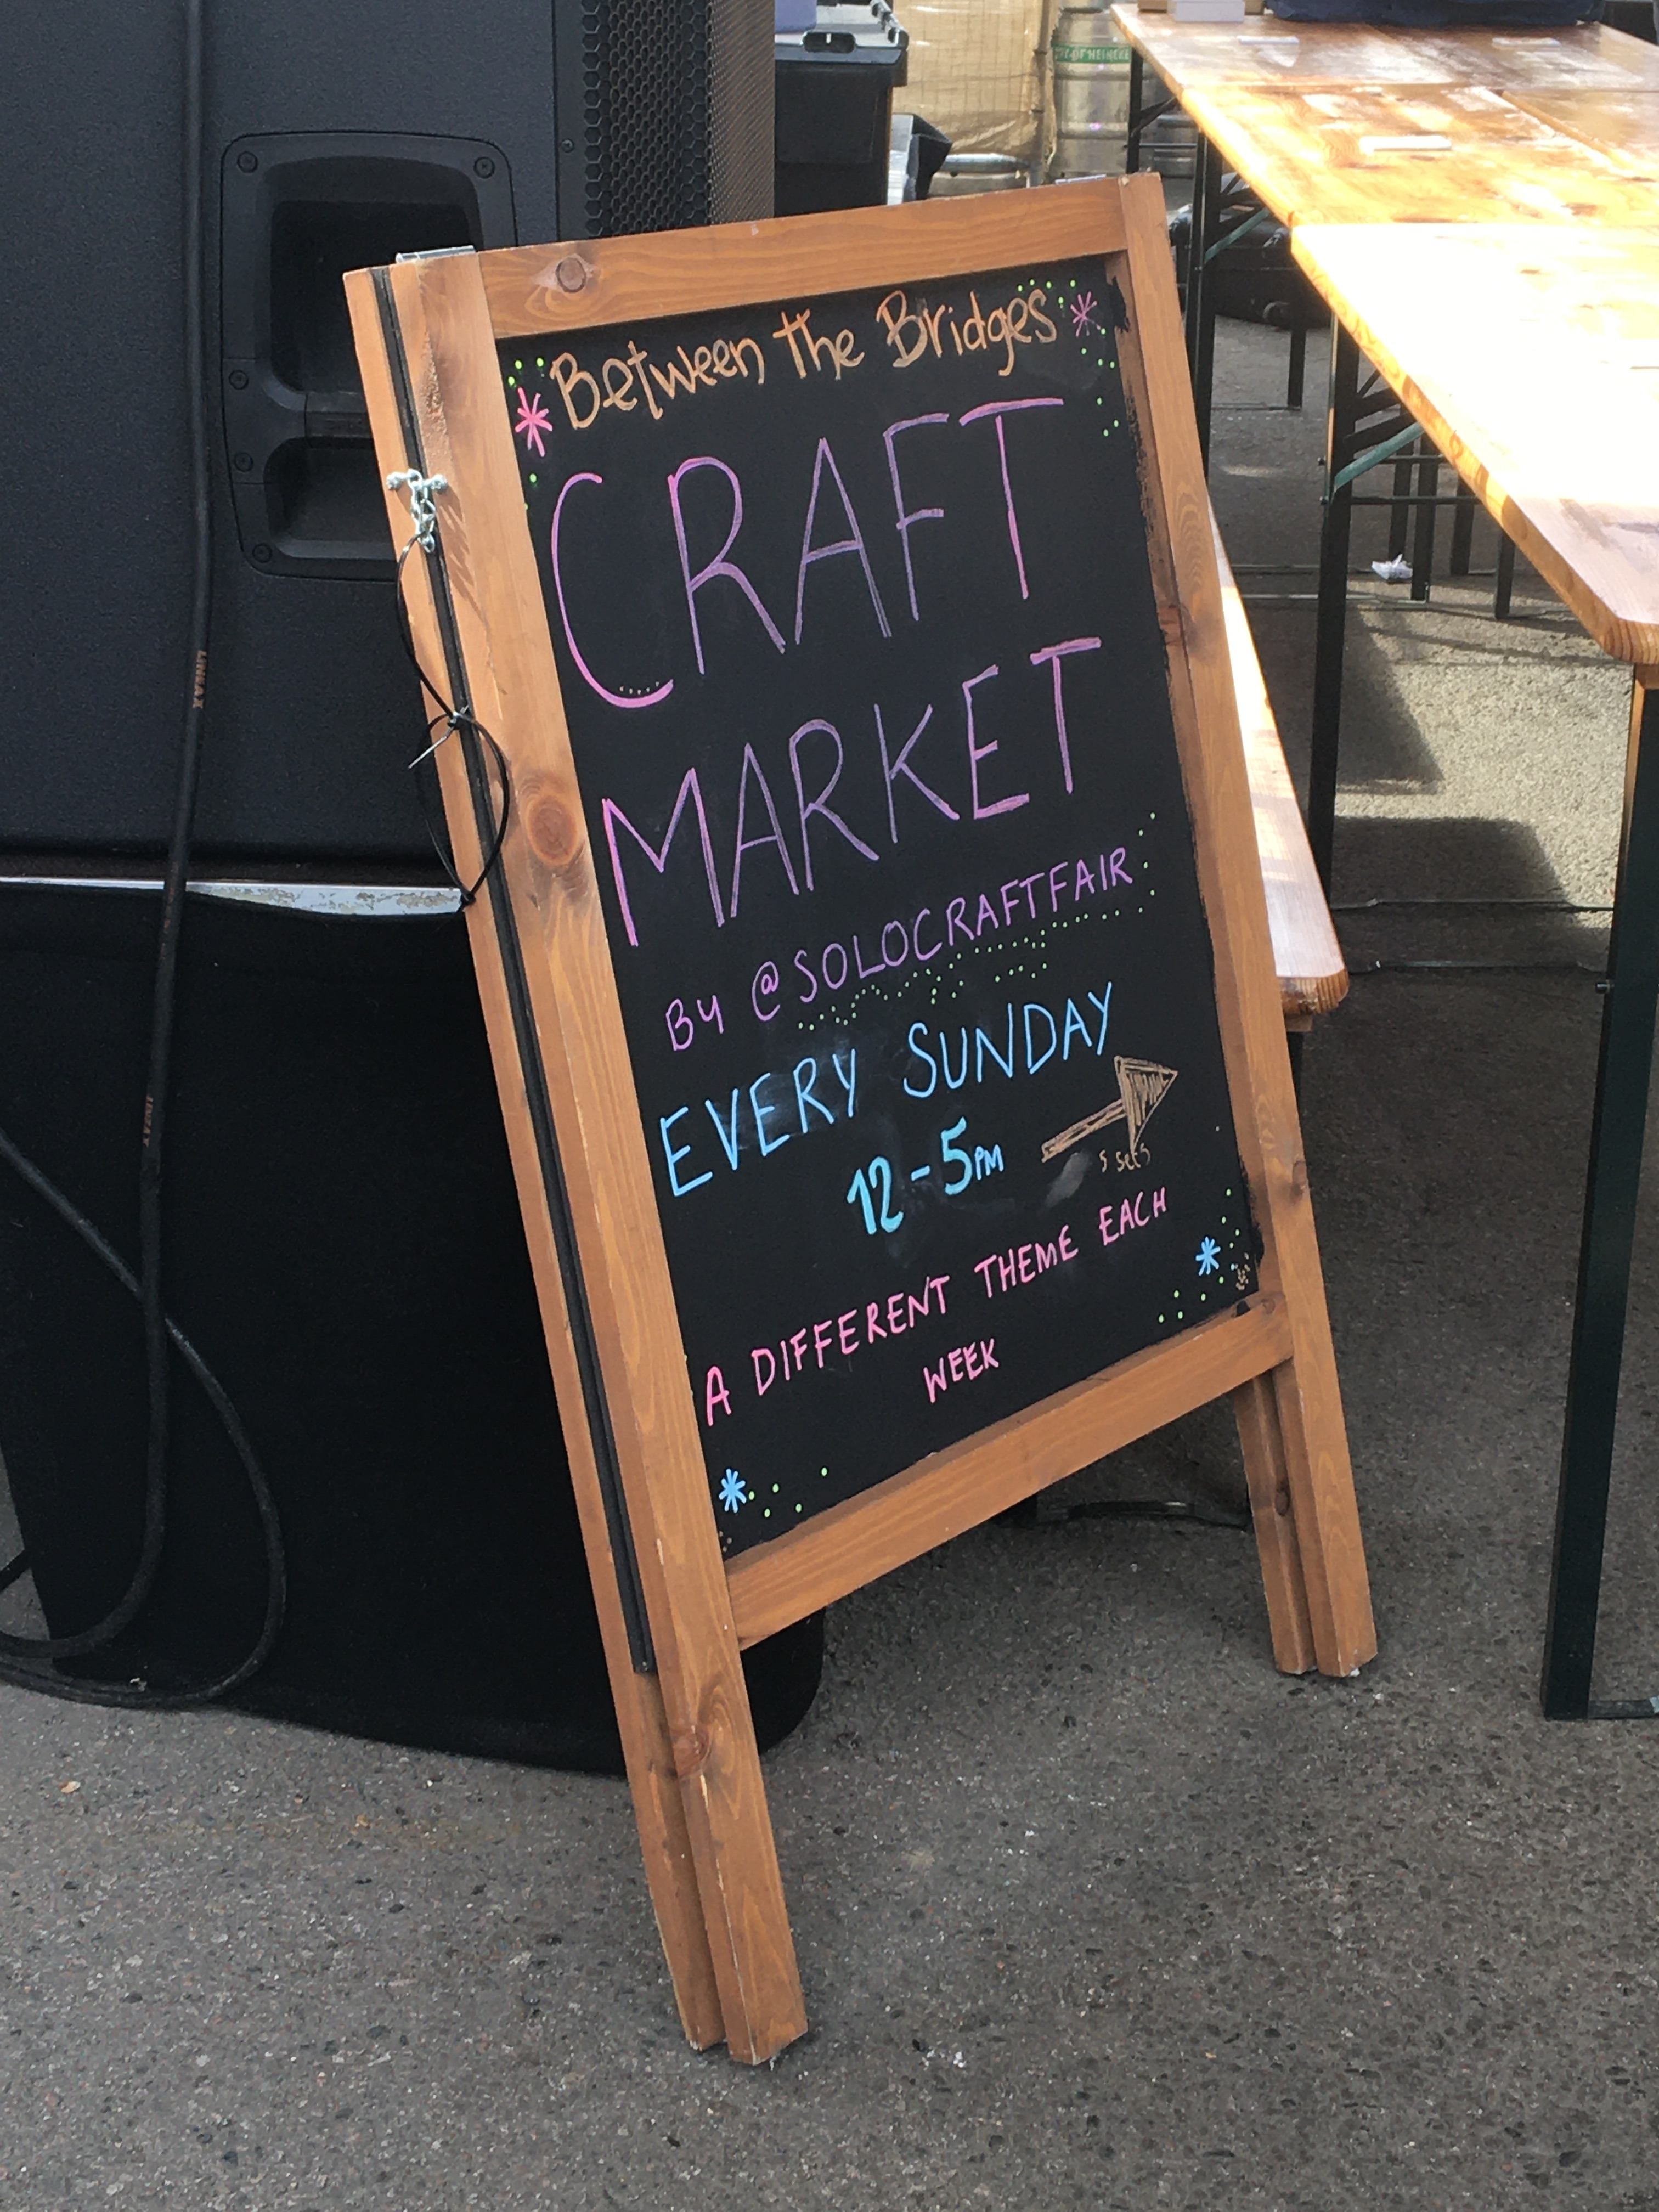 Between The Bridges
CRAFT
MARKET
BY @SOLOCRAFTFAIR
EVERY SUNDAY
12-5PM
5 sec
A DIFFERENT THEME EACH
WEEK
LINEAX
LINEAX